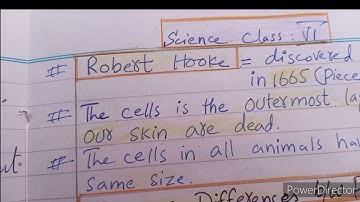 Science Class: VI
# Robert Hooke = discovered
in 1665 (Piece
# The cells is the outermost la
our skin are dead.
# The cells in all animals ha
same size.
Differences b/w
PowerDirector